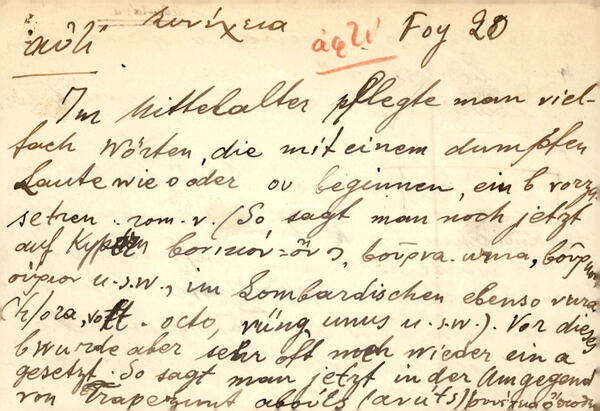 Συνέχεια
αὐτί ἀφτί Foy 20
Im Mittelalter pflegte man viel-
fach Wörten, die mit einem dumpfen
Laute wie o oder ου beginnen, ein b vorzu
setzen. rom. v. (So sagt man noch jetzt
auf Kypern βουνιόν=ὄν, βοῦρνα urna,
οὔριον u.s.w., im Lombardischen ebenso vura
h/ora, vott. octo, vüng unus u.s.w.). Vor dieses
b wurde aber sehr oft noch wieder ein a
gesetzt. So sagt man jetzt in der Umgegend
von Trapezunt